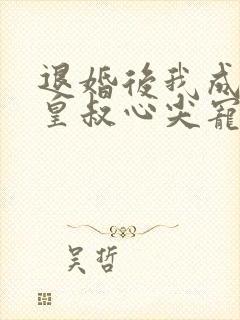 退婚後我成
皇叔心尖寵
吴哲